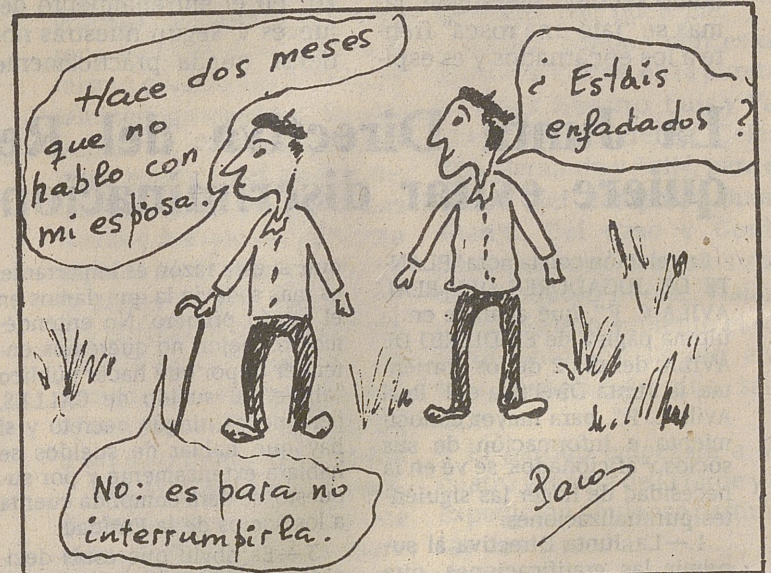 Hace dos meses
que no
hablo con
mi esposa.
¿ Estais
enfadados ?
No: es para no
interrumpirla.
Paco